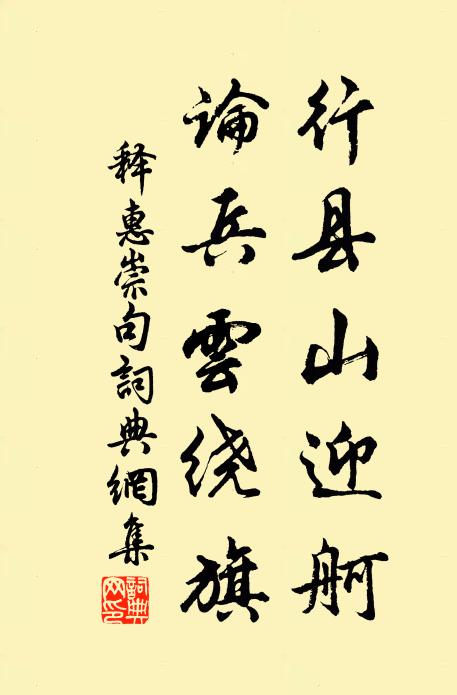 行县山迎舸
論兵雲绕旗
释惠崇句詞典網集
詞典網印